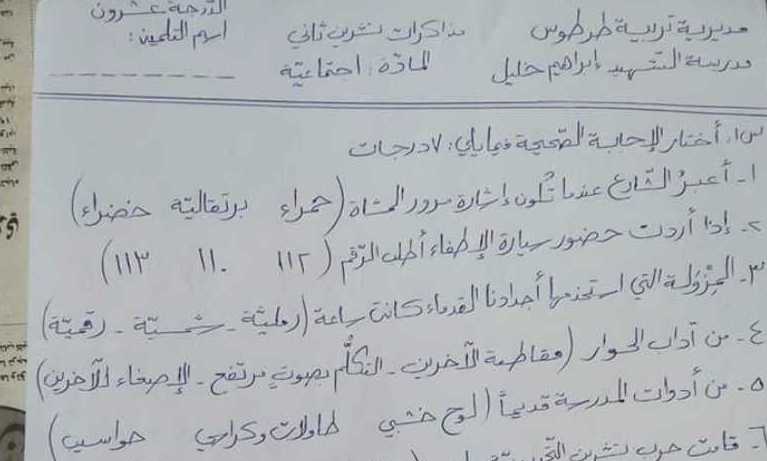 الدرجة عشرون
مديرية تربية طرطوس مذاكرات تشرين ثاني اسم التلميذ:
مدرسة الشهيد إبراهيم خليل المادّة: اجتماعيّة
س١. أختار الإجابة الصّحيحة فيما يلي: ٧ درجات
١- أعبرُ الشّارع عندما تكون إشارة مرور المشاة (حمراء برتقاليّة خضراء)
٢- إذا أردت حضور سيارة الإطفاء أطلب الرّقم (١١٢ ١١٠ ١١٣)
٣- المِزْوَلة التي استخدمها أجدادنا القدماء كانت ساعة (رمليّة - شمسيّة - رقميّة)
٤- من آداب الحوار (مقاطعة الآخرين - التكلُّم بصوتٍ مرتفع - الإصغاء للآخرين)
٥- من أدوات المدرسة قديماً (لوح خشبي طاولات وكراسي حواسيب)
٦- قامت حرب تشرين